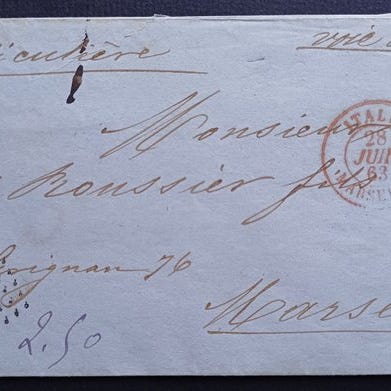 iculière
voie
Monsieur
Roussier fils
rignan 76
Marse
2.50
ITAL
28
JUIN
63
MARSE